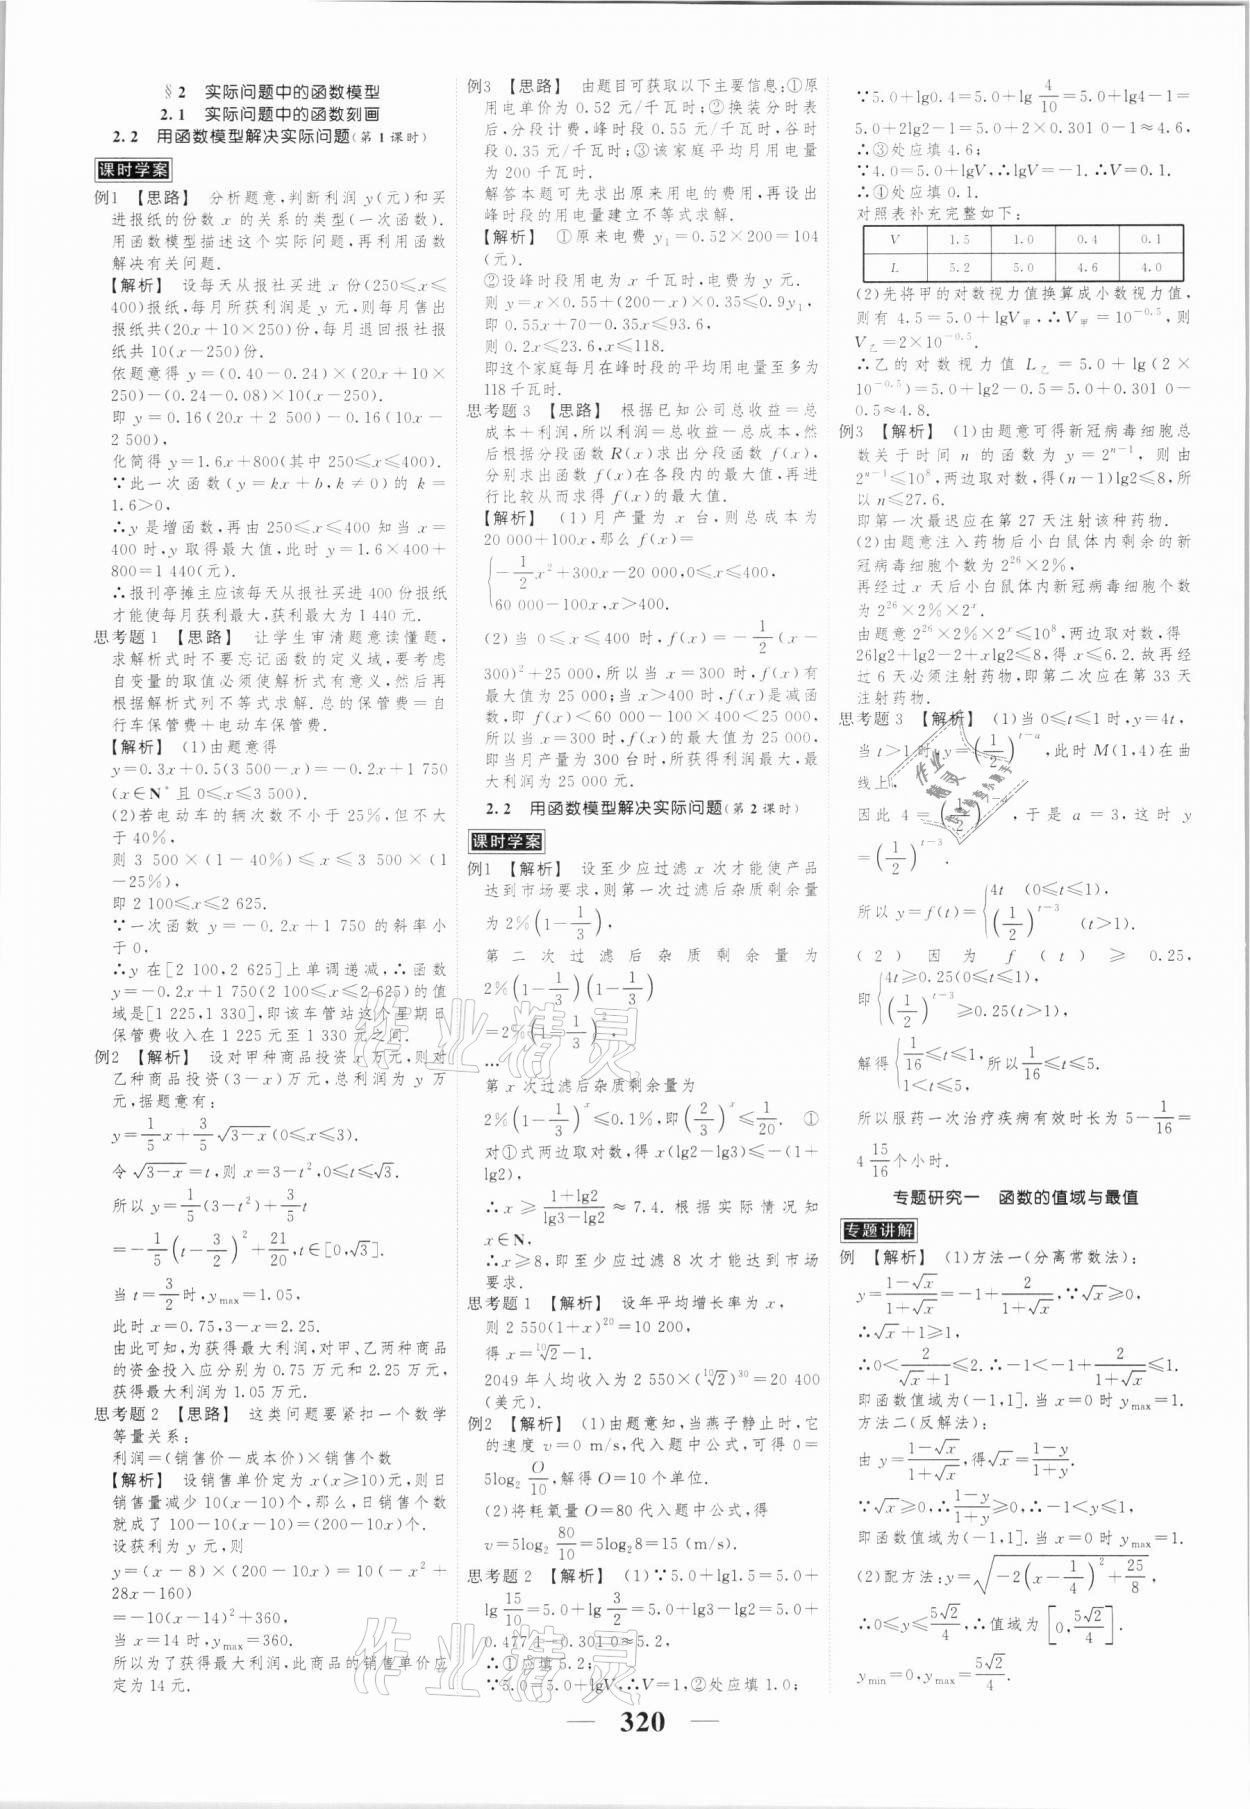 §2 实际问题中的函数模型
2.1 实际问题中的函数刻画
2.2 用函数模型解决实际问题(第1课时)
课时学案
例1 【思路】 分析题意,判断利润 y(元)和买
进报纸的份数 x 的关系的类型(一次函数).
用函数模型描述这个实际问题,再利用函数
解决有关问题.
【解析】 设每天从报社买进 x 份(250≤x≤
400)报纸,每月所获利润是 y 元,则每月售出
报纸共(20x+10×250)份,每月退回报社报
纸共 10(x-250)份.
依题意得 y=(0.40-0.24)×(20x+10×
250)-(0.24-0.08)×10(x-250).
即 y=0.16(20x+2 500)-0.16(10x-
2 500),
化简得 y=1.6x+800(其中 250≤x≤400).
∵此一次函数(y=kx+b,k≠0)的 k=
1.6>0,
∴y 是增函数,再由 250≤x≤400 知当 x=
400 时,y 取得最大值,此时 y=1.6×400+
800=1 440(元).
∴报刊亭摊主应该每天从报社买进 400 份报纸
才能使每月获利最大,获利最大为 1 440 元.
思考题1 【思路】 让学生审清题意读懂题,
求解析式时不要忘记函数的定义域,要考虑
自变量的取值必须使解析式有意义,然后再
根据解析式列不等式求解.总的保管费=自
行车保管费+电动车保管费.
【解析】 (1)由题意得
y=0.3x+0.5(3 500-x)=-0.2x+1 750
(x∈N* 且 0≤x≤3 500).
(2)若电动车的辆次数不小于 25%,但不大
于 40%,
则 3 500×(1-40%)≤x≤3 500×(1
-25%),
即 2 100≤x≤2 625.
∵一次函数 y=-0.2x+1 750 的斜率小
于 0,
∴y 在[2 100,2 625]上单调递减,∴函数
y=-0.2x+1 750(2 100≤x≤2 625)的值
域是[1 225,1 330],即该车管站这个星期日
保管费收入在 1 225 元至 1 330 元之间.
例2 【解析】 设对甲种商品投资 x 万元,则对
乙种商品投资(3-x)万元,总利润为 y 万
元,据题意有:
y=1/5x+3/5√(3-x)(0≤x≤3).
令√(3-x)=t,则 x=3-t²,0≤t≤√3.
所以 y=1/5(3-t²)+3/5t
=-1/5(t-3/2)²+21/20,t∈[0,√3].
当 t=3/2时,ymax=1.05,
此时 x=0.75,3-x=2.25.
由此可知,为获得最大利润,对甲、乙两种商品
的资金投入应分别为 0.75 万元和 2.25 万元,
获得最大利润为 1.05 万元.
思考题2 【思路】 这类问题要紧扣一个数学
等量关系:
利润=(销售价-成本价)×销售个数
【解析】 设销售单价定为 x(x≥10)元,则日
销售量减少 10(x-10)个,那么,日销售个数
就成了 100-10(x-10)=(200-10x)个.
设获利为 y 元,则
y=(x-8)×(200-10x)=10(-x²+
28x-160)
=-10(x-14)²+360,
当 x=14 时,ymax=360.
所以为了获得最大利润,此商品的销售单价应
定为 14 元.
例3 【思路】 由题目可获取以下主要信息:①原
用电单价为 0.52 元/千瓦时;②换装分时表
后,分段计费,峰时段 0.55 元/千瓦时,谷时
段 0.35 元/千瓦时;③该家庭平均月用电量
为 200 千瓦时.
解答本题可先求出原来用电的费用,再设出
峰时段的用电量建立不等式求解.
【解析】 ①原来电费 y₁=0.52×200=104
(元).
②设峰时段用电为 x 千瓦时,电费为 y 元.
则 y=x×0.55+(200-x)×0.35≤0.9y₁,
即 0.55x+70-0.35x≤93.6,
则 0.2x≤23.6,x≤118.
即这个家庭每月在峰时段的平均用电量至多为
118 千瓦时.
思考题3 【思路】 根据已知公司总收益=总
成本+利润,所以利润=总收益-总成本,然
后根据分段函数 R(x)求出分段函数 f(x),
分别求出函数 f(x)在各段内的最大值,再进
行比较从而求得 f(x)的最大值.
【解析】 (1)月产量为 x 台,则总成本为
20 000+100x,那么 f(x)=
{-1/2x²+300x-20 000,0≤x≤400,
60 000-100x,x>400.
(2)当 0≤x≤400 时,f(x)=-1/2(x-
300)²+25 000,所以当 x=300 时,f(x)有
最大值为 25 000;当 x>400 时,f(x)是减函
数,即 f(x)<60 000-100×400<25 000,
所以当 x=300 时,f(x)的最大值为 25 000,
即当月产量为 300 台时,所获得利润最大,最
大利润为 25 000 元.
2.2 用函数模型解决实际问题(第2课时)
课时学案
例1 【解析】 设至少应过滤 x 次才能使产品
达到市场要求,则第一次过滤后杂质剩余量
为 2%(1-1/3),
第二次过滤后杂质剩余量为
2%(1-1/3)(1-1/3)
=2%(1-1/3)²,
…
第 x 次过滤后杂质剩余量为
2%(1-1/3)ˣ≤0.1%,即(2/3)ˣ≤1/20. ①
对①式两边取对数,得 x(lg2-lg3)≤-(1+
lg2),
∴x≥(1+lg2)/(lg3-lg2)≈7.4.根据实际情况知
x∈N,
∴x≥8,即至少应过滤 8 次才能达到市场
要求.
思考题1 【解析】 设年平均增长率为 x,
则 2 550(1+x)²⁰=10 200,
得 x=¹⁰√2-1.
2049 年人均收入为 2 550×(¹⁰√2)³⁰=20 400
(美元).
例2 【解析】 (1)由题意知,当燕子静止时,它
的速度 v=0 m/s,代入题中公式,可得 0=
5log₂ O/10,解得 O=10 个单位.
(2)将耗氧量 O=80 代入题中公式,得
v=5log₂ 80/10=5log₂8=15 (m/s).
思考题2 【解析】 (1)∵5.0+lg1.5=5.0+
lg 15/10=5.0+lg 3/2=5.0+lg3-lg2=5.0+
0.477 1-0.301 0≈5.2,
∴①应填 5.2;
∵5.0=5.0+lgV,∴V=1,②处应填 1.0;
∵5.0+lg0.4=5.0+lg 4/10=5.0+lg4-1=
5.0+2lg2-1=5.0+2×0.301 0-1≈4.6,
∴③处应填 4.6;
∵4.0=5.0+lgV,∴lgV=-1.∴V=0.1.
∴④处应填 0.1.
对照表补充完整如下:
V 1.5 1.0 0.4 0.1
L 5.2 5.0 4.6 4.0
(2)先将甲的对数视力值换算成小数视力值,
则有 4.5=5.0+lgV甲,∴V甲=10⁻⁰·⁵,则
V乙=2×10⁻⁰·⁵.
∴乙的对数视力值 L乙=5.0+lg(2×
10⁻⁰·⁵)=5.0+lg2-0.5=5.0+0.301 0-
0.5≈4.8.
例3 【解析】 (1)由题意可得新冠病毒细胞总
数关于时间 n 的函数为 y=2ⁿ⁻¹,则由
2ⁿ⁻¹≤10⁸,两边取对数,得(n-1)lg2≤8,所
以 n≤27.6.
即第一次最迟应在第 27 天注射该种药物.
(2)由题意注入药物后小白鼠体内剩余的新
冠病毒细胞个数为 2²⁶×2%,
再经过 x 天后小白鼠体内新冠病毒细胞个数
为 2²⁶×2%×2ˣ.
由题意 2²⁶×2%×2ˣ≤10⁸,两边取对数,得
26lg2+lg2-2+xlg2≤8,得 x≤6.2.故再经
过 6 天必须注射药物,即第二次应在第 33 天
注射药物.
思考题3 【解析】 (1)当 0≤t≤1 时,y=4t,
当 t>1 时,y=(1/2)ᵗ⁻ᵃ,此时 M(1,4)在曲
线上,
因此 4=(1/2)¹⁻ᵃ,于是 a=3,这时 y
=(1/2)ᵗ⁻³.
所以 y=f(t)={4t (0≤t≤1),
(1/2)ᵗ⁻³ (t>1).
(2)因为 f(t)≥0.25,
即{4t≥0.25(0≤t≤1),
(1/2)ᵗ⁻³≥0.25(t>1),
解得{1/16≤t≤1,所以1/16≤t≤5.
1<t≤5,
所以服药一次治疗疾病有效时长为 5-1/16=
4 15/16个小时.
专题研究一 函数的值域与最值
专题讲解
例 【解析】 (1)方法一(分离常数法):
y=(1-√x)/(1+√x)=-1+2/(1+√x),∵√x≥0,
∴√x+1≥1,
∴0<2/(√x+1)≤2.∴-1<-1+2/(1+√x)≤1.
即函数值域为(-1,1].当 x=0 时 ymax=1.
方法二(反解法):
由 y=(1-√x)/(1+√x),得√x=(1-y)/(1+y).
∵√x≥0,∴(1-y)/(1+y)≥0,∴-1<y≤1,
即函数值域为(-1,1].当 x=0 时 ymax=1.
(2)配方法:y=√(-2(x-1/4)²+25/8),
∴0≤y≤5√2/4,∴值域为[0,5√2/4].
ymin=0,ymax=5√2/4.
320
作业精灵
作业精灵
作业精灵